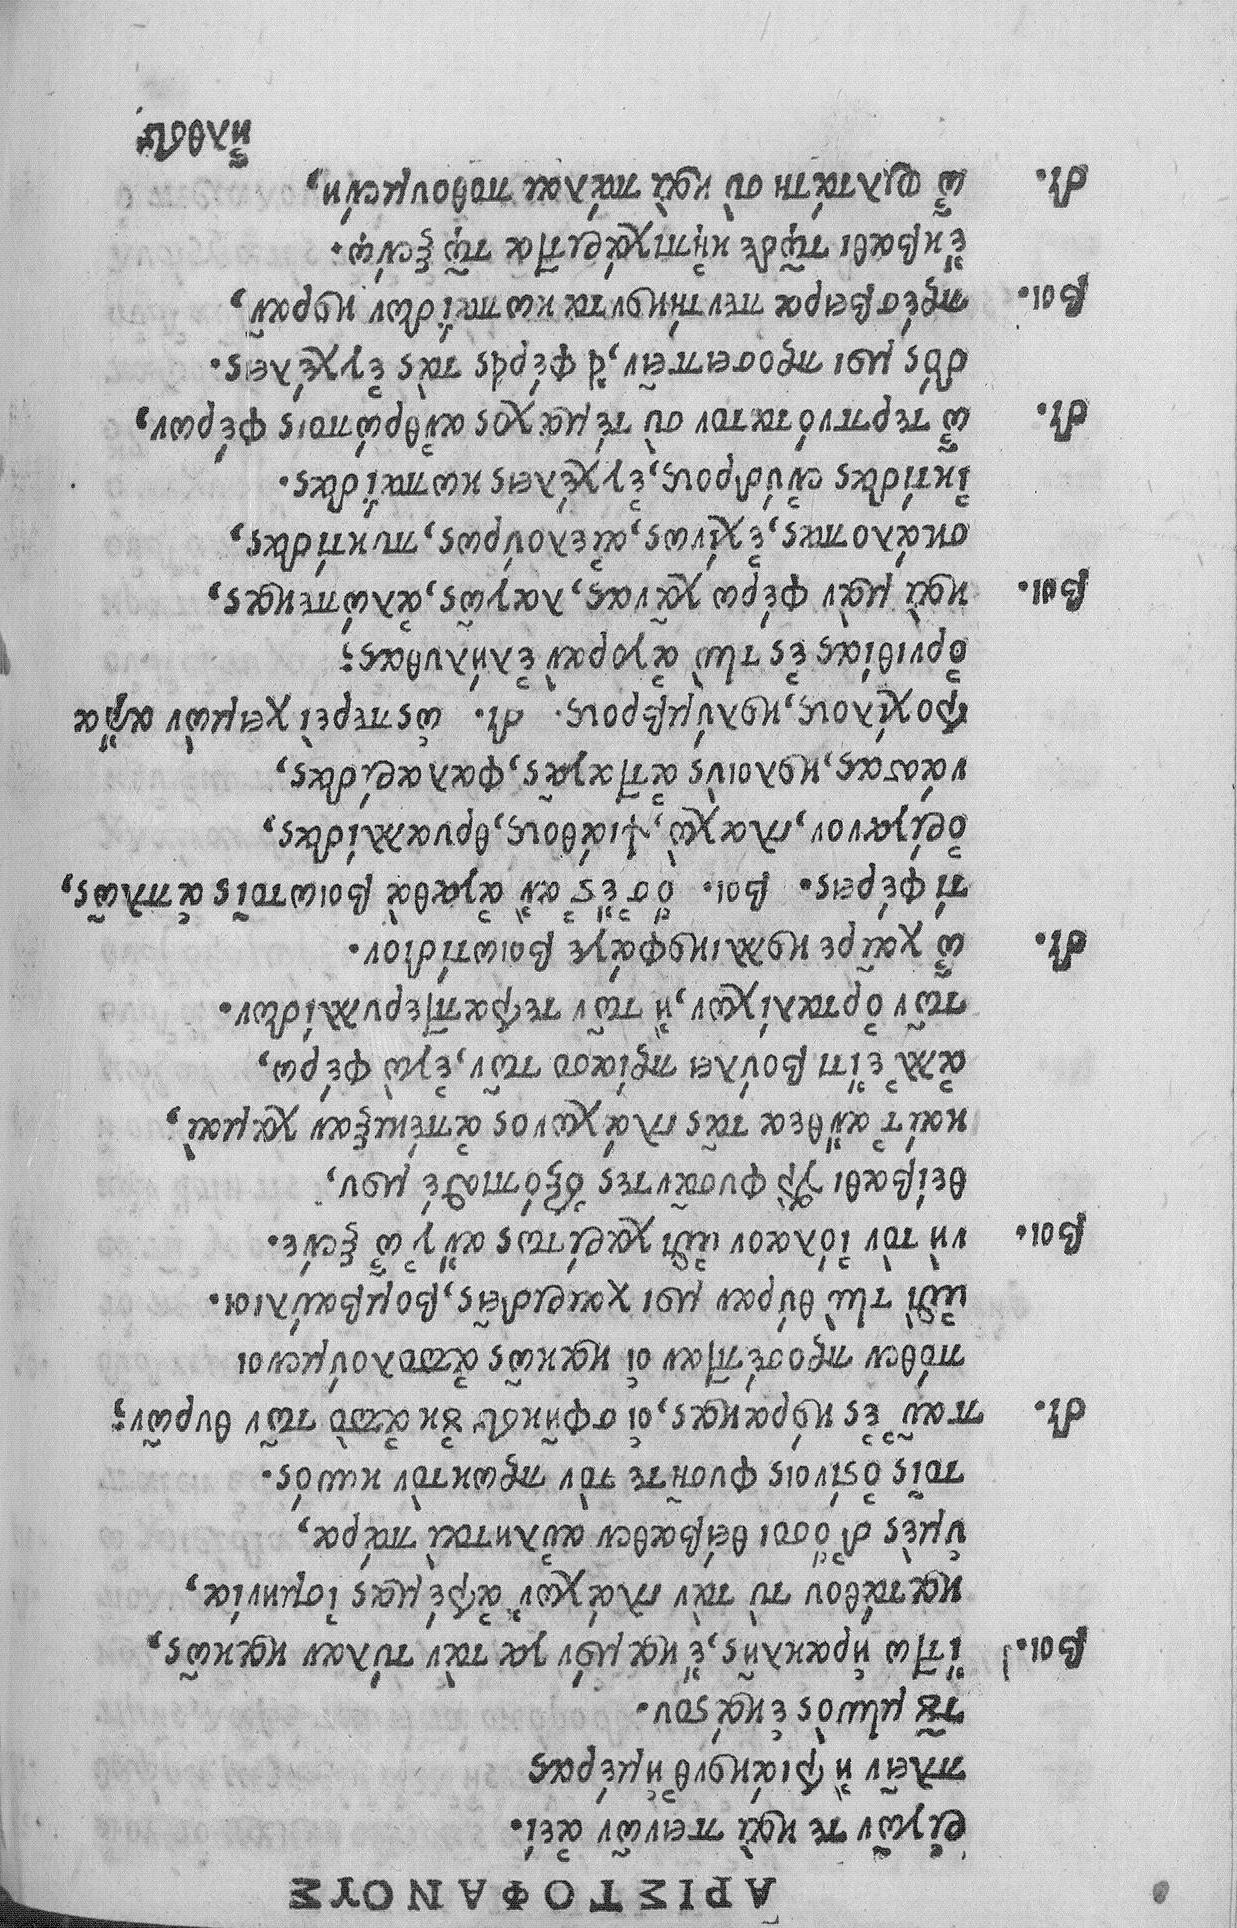 ΑΡΙΣΤΟΦΑΝΟΥΣ
ῥιγῶν τε καὶ πεινῶν ἀεί.
πλεῖν ἢ τριάκονθ᾽ ἡμέρας
τοῦ μηνὸς ἑκάστου.
Βοι. ἴττω ἡρακλῆς, ἔκαμόν γα τὰν τύλαν κακῶς,
κατάθου τὺ τὰν γλάχων᾽ ἀτρέμας ἰσμηνία,
ὑμὲς δ᾽ ὅσοι θείβαθεν αὐληταὶ πάρα,
τοῖς ὀστίνοις φυσῆτε τὸν πρωκτὸν κυνός.
Δι. παῦ᾽ ἐς κόρακας, οἱ σφῆκες οὐκ ἀπὸ τῶν θυρῶν;
πόθεν προσέπταν οἱ κακῶς ἀπολούμενοι
ἐπὶ τὴν θύραν μοι χαιριδεῖς, βομβαύλιοι.
Βοι. νὴ τὸν ἰόλαον ἐπιχαρίττως ἄν γ᾽ ὦ ξένε.
θείβαθι γὰρ φυσᾶντες ἐξόπισθέ μου,
καίτ᾽ ἄνθεα τᾶς γλάχωνος ἀπέκιξαν χαμαὶ,
ἀλλ᾽ εἴ τι βούλει πρίασο τῶν, ἐγὼ φέρω,
τῶν ὀρταλίχων, ἢ τῶν τετραπτερυλλίδων.
Δι. ὦ χαῖρε κολλικοφάγε βοιωτίδιον.
τί φέρεις. Βοι. ὅσ᾽ ἐστ᾽ ἂν ἀγαθὰ βοιωτοῖς ἁπλῶς,
ὀρίγανον, γλαχὼ, ψιάθους, θρυαλλίδας,
νάσσας, κολοιὺς ἀτταγᾶς, φαλαρίδας,
τροχίλους, κολύμβους. Δι. ὡσπερεὶ χειμὼν ἄρα
ὀρνιθίας ἐς τὴν ἀγορὰν ἐλήλυθας;
Βοι. καὶ μὰν φέρω χᾶνας, λαγῶς, ἀλώπεκας,
σκάλοπας, ἐχίνως, αἰελούρως, πυκτίδας,
ἰκτίδας ἐνύδρους, ἐγχέλεις κωπαΐδας.
Δι. ὦ τερπνότατον σὺ τέμαχος ἀνθρώποις φέρων,
δός μοι προσειπεῖν, εἰ φέρεις τὰς ἐγχέλεις.
Βοι. πρέσβειρα πεντήκοντα κωπαΐδων κορᾶν,
ἔκβαθι τῷδε κἠπιχάριτται τῷ ξένῳ.
Δι. ὦ φιλτάτη σὺ καὶ πάλαι ποθουμένη,
ἦλθες